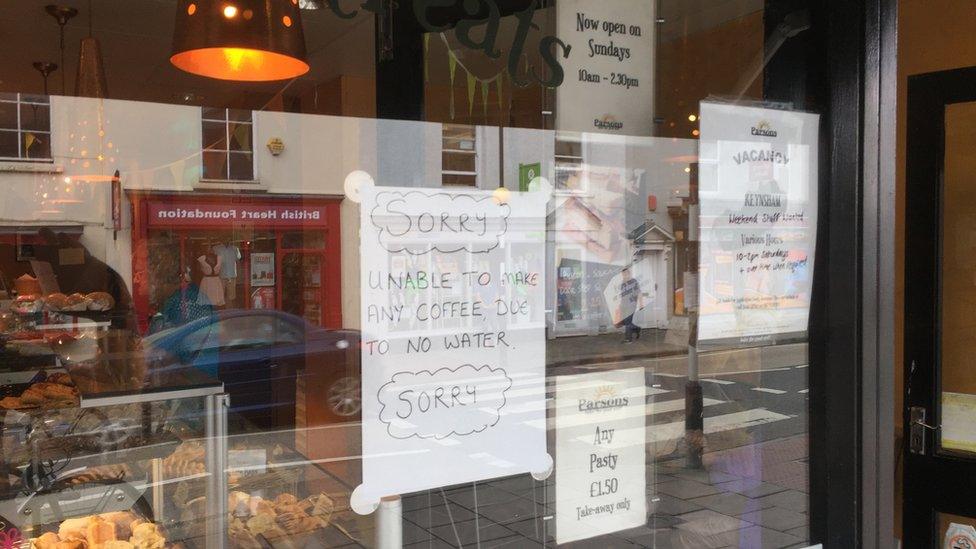 treats
Now open on
Sundays
10am - 2.30pm
Parsons
British Heart Foundation
SORRY
UNABLE TO MAKE
ANY COFFEE, DUE
TO NO WATER.
SORRY
Parsons
VACANCY
KEYNSHAM
Weekend Staff Wanted
Various Hours
10-2pm Saturdays
+ over time when required
Parsons
Any
Pasty
£1.50
Take-away only